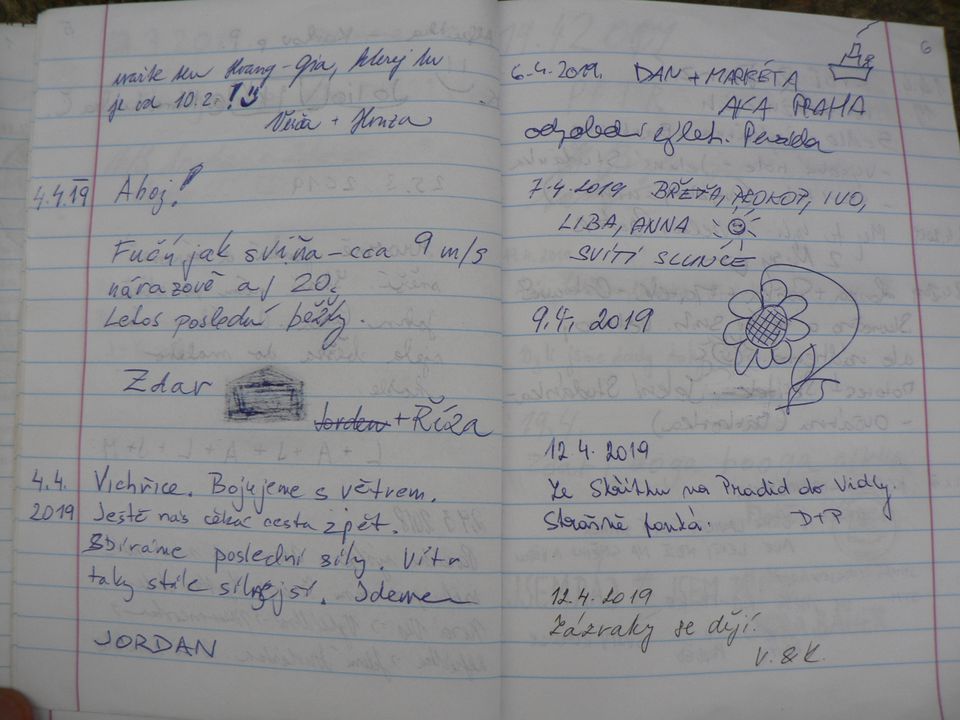 Hoang-Gia, který tu
je od 10.2.!
Verča + Honza
4.4.19 Ahoj!
Fučí jak sviňa - cca 9 m/s
nárazově až 20.
Letos poslední běžky.
Zdar
Jordan + Říza
4.4. Vichřice. Bojujeme s větrem.
2019 Ještě nás čeká cesta zpět.
Sbíráme poslední síly. Vítr
taky stále silnější. Jdeme
JORDAN
6
6.4.2019. DAN + MARKÉTA
AKA PRAHA
odpolední výlet. Paráda
7.4.2019 BŘEŤA, PROKOP, IVO,
LIBA, ANNA
SVÍTÍ SLUNCE
9.4. 2019
12.4.2019
Ze na Praděd do Vidly.
Strašně fouká. D+P
12.4.2019
Zázraky se dějí.
V. & K.